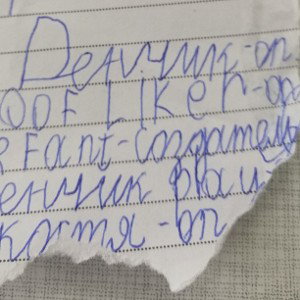 Денчик-оп
OOF Liker-оп
eFant-создатель
енчик влаи
костя-оп